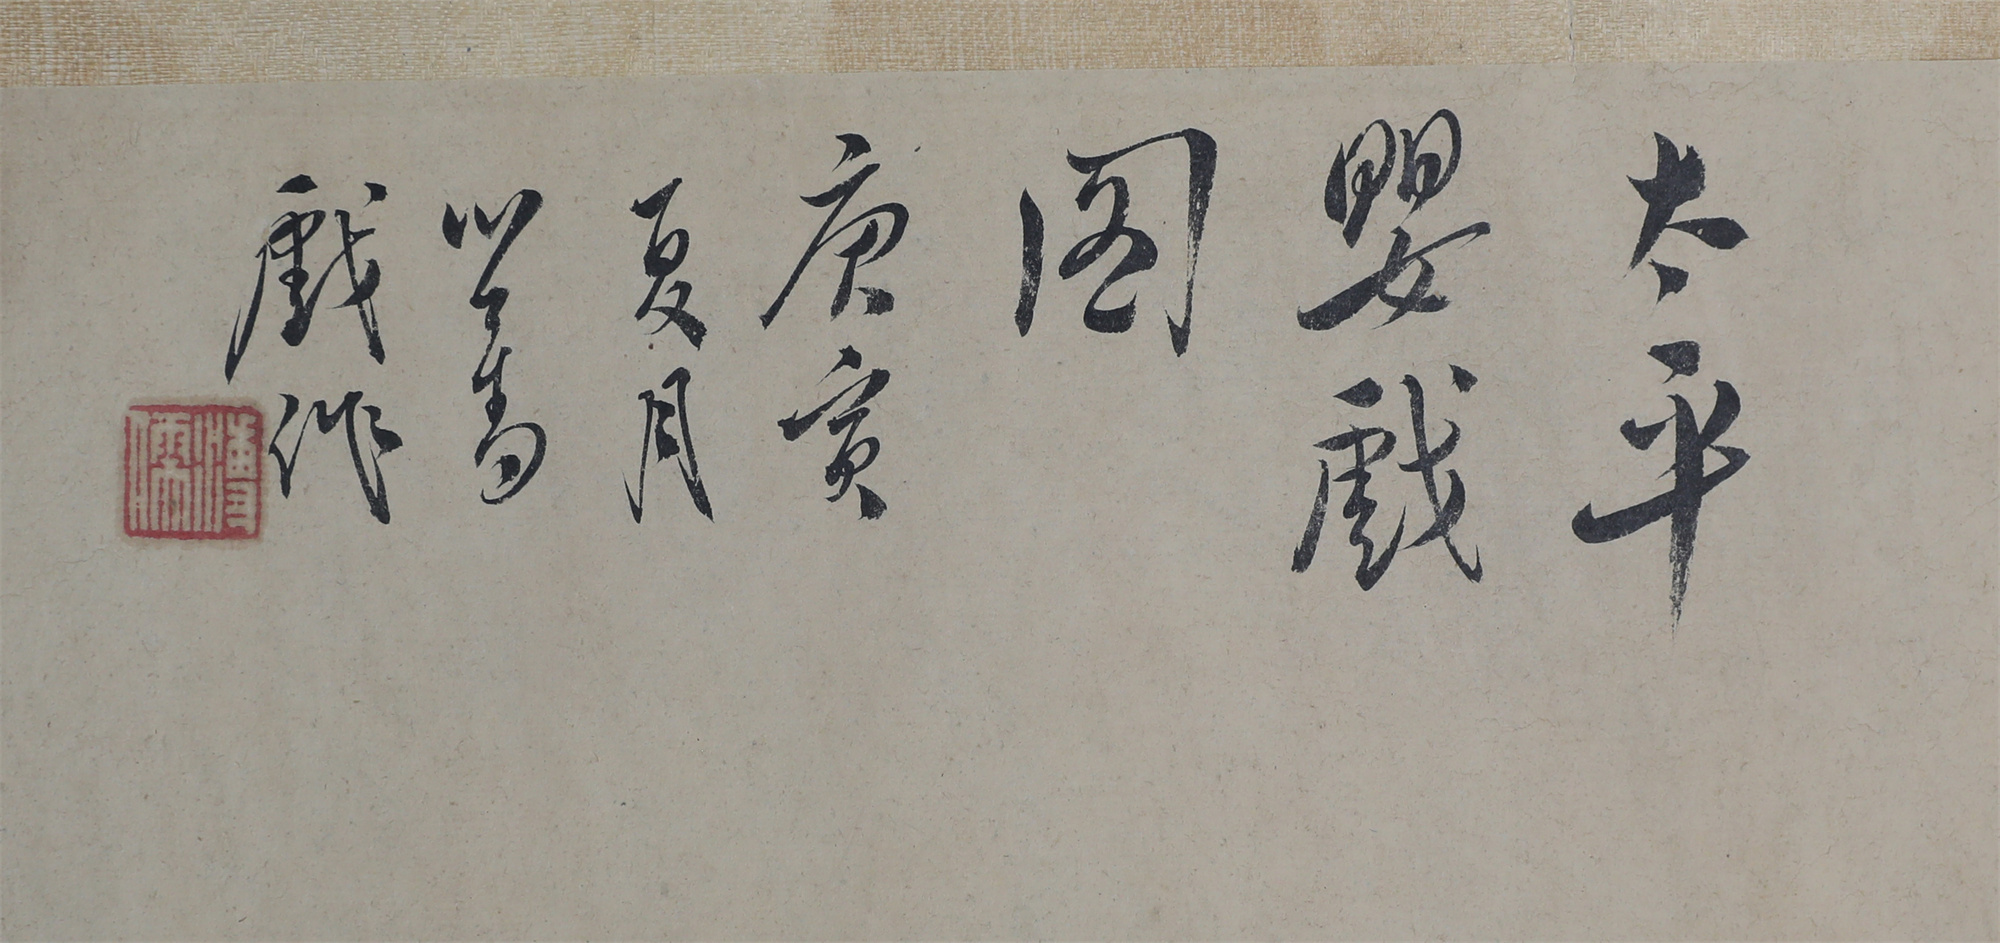 太平
嬰戲
图
庚寅
夏月
心畬
戲作
溥儒